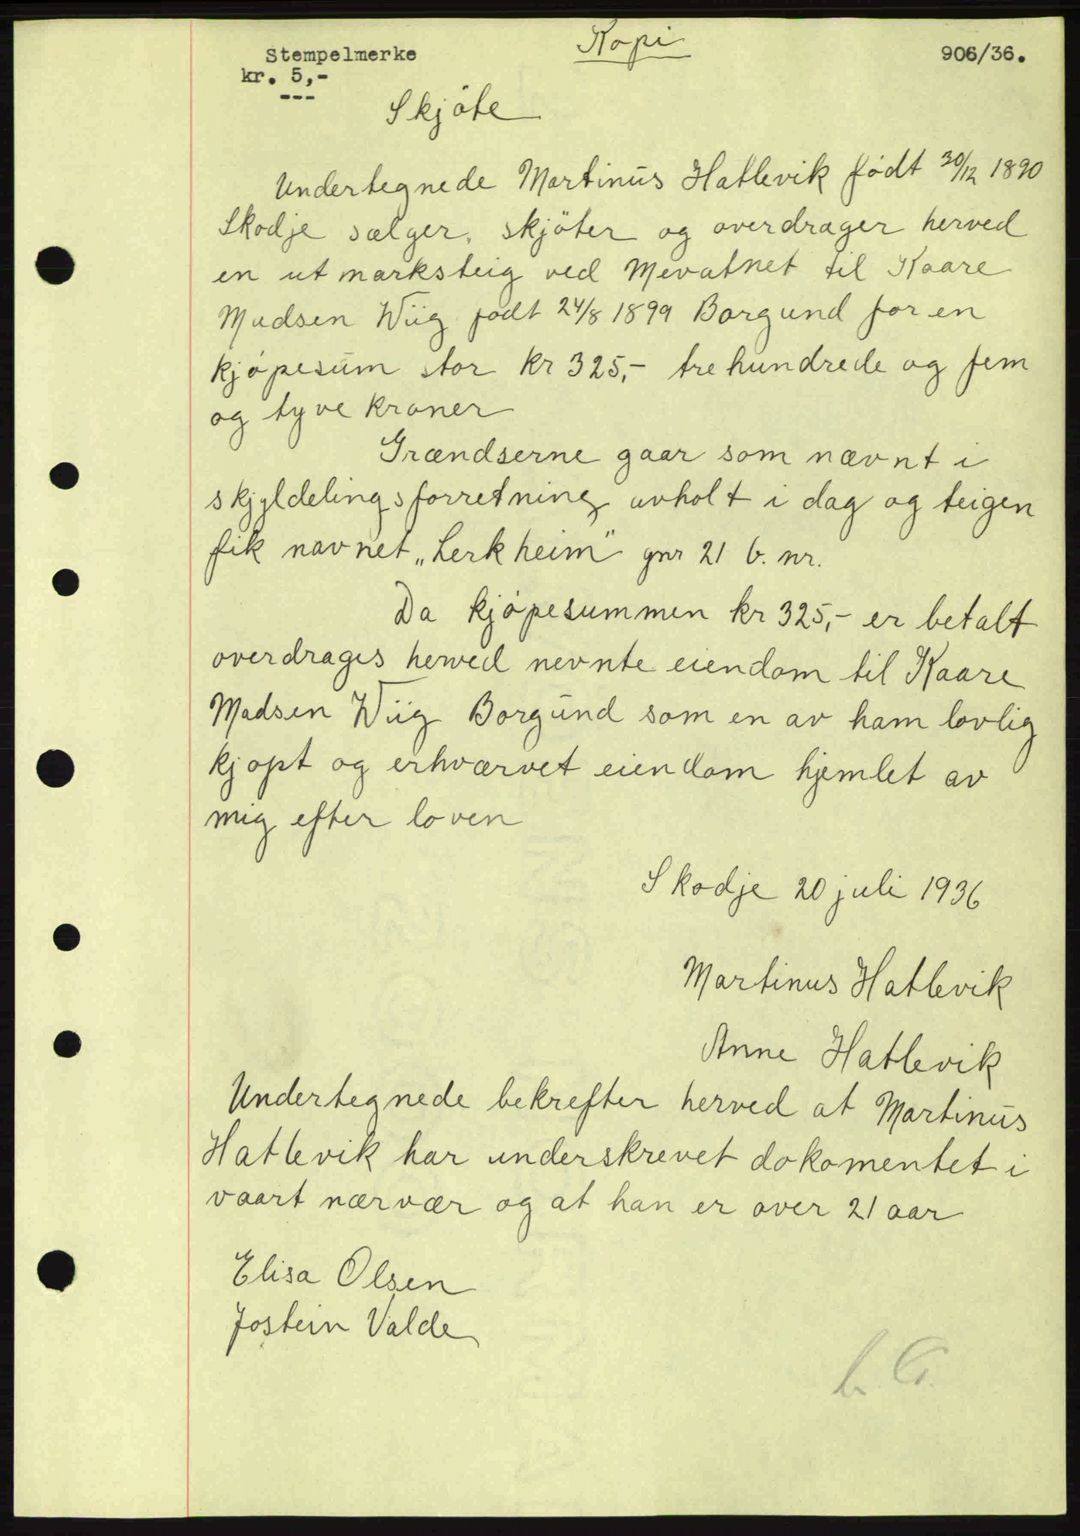 Stempelmerke
kr. 5,-
---
Kopi
906/36.
Skjöte
Undertegnede Martinus Hatlevik født 30/12 1890
Skodje sælger, skjöter og overdrager herved
en utmarksteig ved Mevatnet til Kaare
Madsen Wiig født 24/8 1899 Borgund for en
kjøpesum stor kr 325,- trehundrede og fem
og tyve kroner
Grændserne gaar som nævnt i
skjyldelingsforretning avholt i dag og teigen
fik navnet „Lerkheim" gnr 21 b. nr.
Da kjøpesummen kr 325,- er betalt
overdrages herved nevnte eiendom til Kaare
Madsen Wiig Borgund som en av ham lovlig
kjøpt og erhværvet eiendom hjemlet av
mig efter loven
Skodje 20 juli 1936
Martinus Hatlevik
Anne Hatlevik
Undertegnede bekrefter herved at Martinus
Hatlevik har underskrevet dokomentet i
vaart nærvær og at han er over 21 aar
Elisa Olsen
Jostein Valde